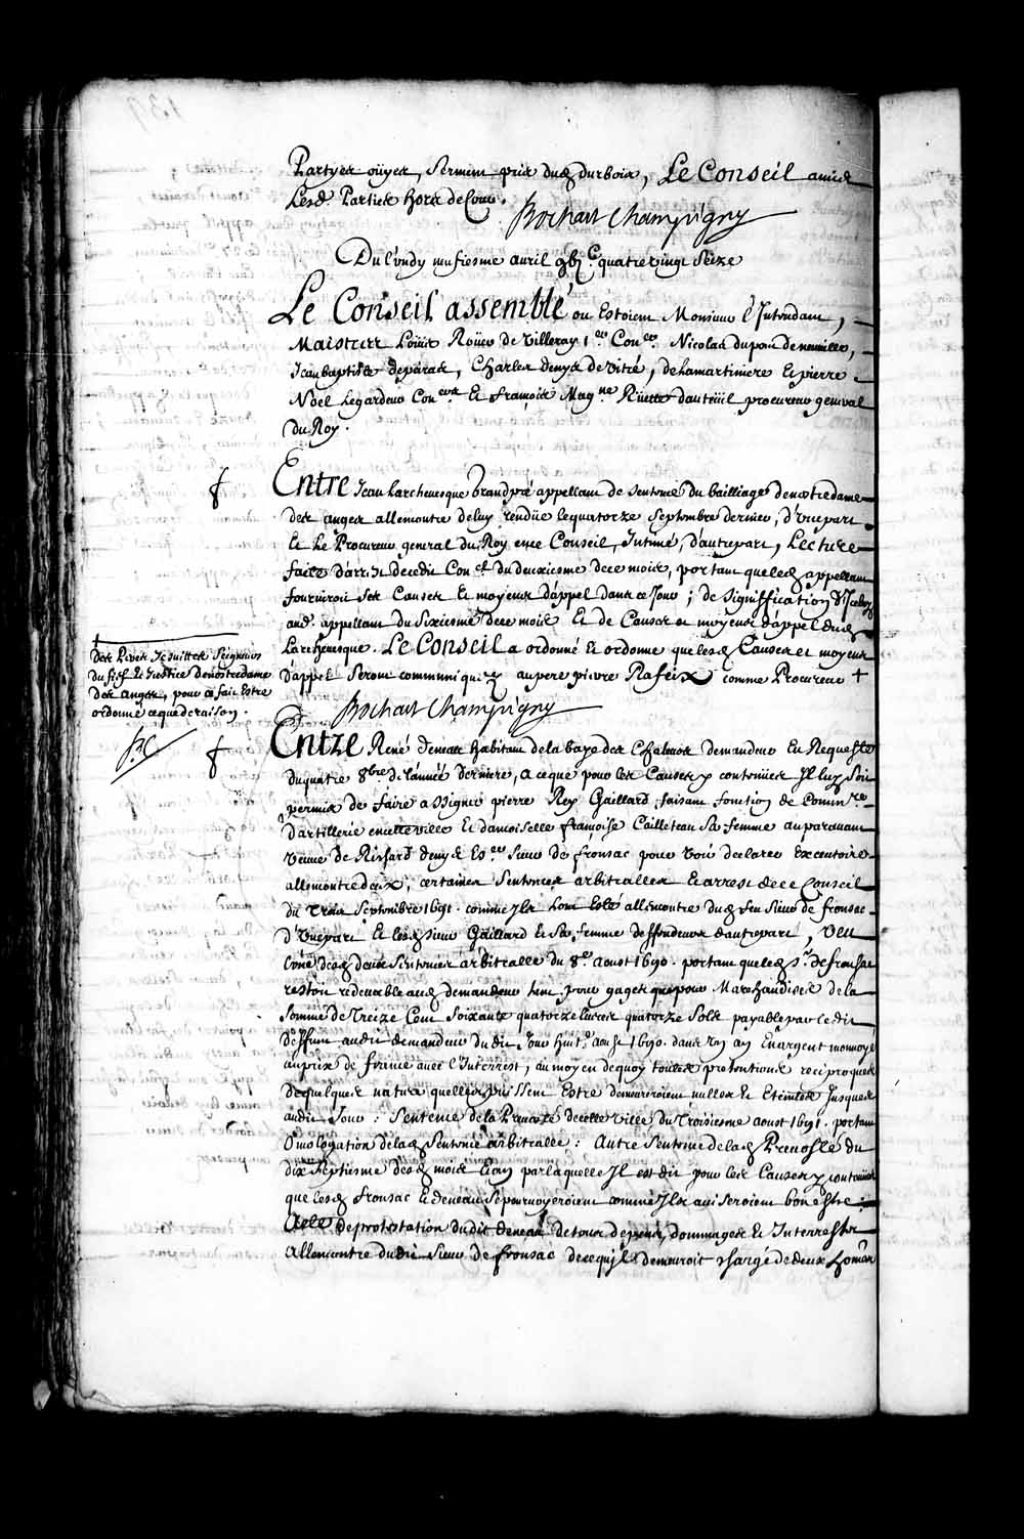 Partyes oüyes, Serment pris dud durbois, Le Conseil a mis
Lesd Parties hors de Cour.
Bochart Champigny
Du Lundy neufiesme avril gbj C. quatrevingt Seize
Le Conseil assemblé ou Estoient Monsieur l'Intendant,
Maistres Loüis Roüer de Villeray 1er Coner. Nicolas dupont de neuville,
Jean baptiste depeiras, Charles denys de Vitré, delamartiniere Et pierre
Noel Legardeur Coners Et françois Magne Rüette dauteüil procureur general
du Roy.
Entre Jean Larchevesque Grandpré appellant de Sentence du bailliage de nostre dame
des anges allencontre de luy rendüe le quatorze Septembre dernier, d'Une part
Et Le Procureur general du Roy en ce Conseil, Intimé, d'autre part, Lecture
faite d'arrest de cedit Conel du deuxiesme de ce mois, portant que led appellant
fourniroit ses Causes Et moyens d'appel dans ce Jour ; de Signiffication d'Iceluy
aud. appellant du Sixiesme de ce mois Et de Causes et moyens d'appel dud
Larchevesque. Le Conseil a ordonné Et ordonne que lesd Causes et moyens
d'appel Seront communiquez au pere pierre Rafeix comme Procureur +
des Peres Jesuittes Seigneurs
du fief Et Justice de nostre dame
des anges, pour ce fait Estre
ordonné ce que de raison.
Bochart Champigny
Entre René deneau habitant de la baye des Chaleurs demandeur En Requeste
du quatre 8bre de l'année derniere, a ce que pour les Causes y contenües Il luy Soit
permis de faire assigner pierre Rey Gaillard faisant fonction de Commre
d'artillerie en cette ville Et damoiselle françoise Cailleteau Sa femme auparavant
veuve de Richard denys Esr Sieur de fronsac pour Voir declarer Executoire
allencontre deux, certaines Sentences arbitralles Et arrest de ce Conseil
du Trois Septembre 1691. comme Ils Lont Esté allencontre dud feu Sieur de fronsac
d'Une part Et lesd Sieur Gaillard Et Sa femme deffendeurs d'autre part, Veu
L'une desd deux Sentences arbitralle du 8e aoust 1690. portant que led Sr. de fronsac
restoit redevable aud demandeur tant pour gages que pour Marchandises de la
Somme de Treize Cent Soixante quatorze livres quatorze Sols payable par ledit
deffunt audit demandeur dudit Jour huit. aoust 1690. dans un an En argent monnoyé
au prix de france avec l'Interrest, au moyen de quoy toutes pretentions reciproques
de quelques natures quelles puissent Estre demeureroient nulles Et Eteintes Jusques
audit Jour : Sentence de la Prevosté de cette ville du Troisiesme aoust 1691. portant
Omologation de lad Sentence arbitralle : Autre Sentence de lad Prevosté du
dix Septiesme desd mois Et an par laquelle Il est dit pour les Causes y contenües
que lesd fronsac Et deneau Se pourvoyeroient comme Ils aviseroient bon estre ;
Acte de protestation dudit deneau de tous depens, dommages Et Interrests
allencontre dudit Sieur de fronsac de ce qu'il demeuroit chargé de deux hommes